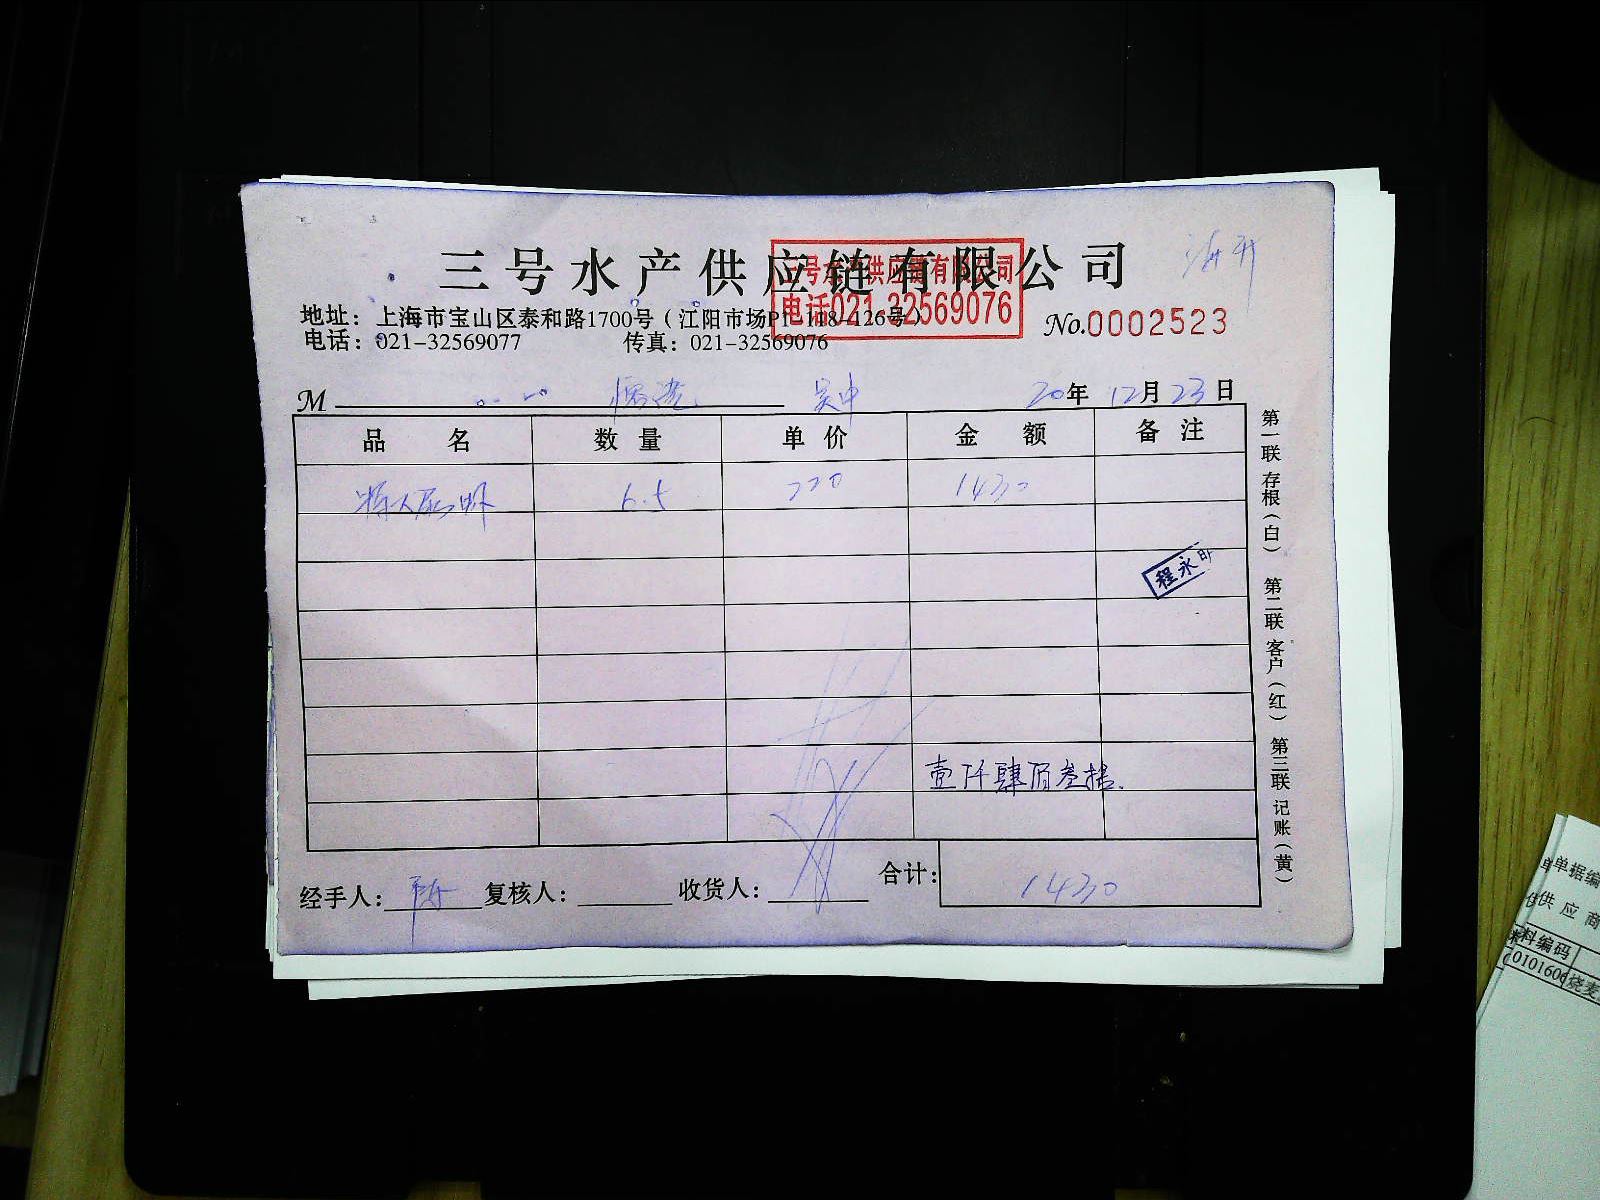 三号水产供应链有限公司
三号水产供应链有限公司
电话021-32569076
地址：上海市宝山区泰和路1700号（江阳市场P1-118-126号）
No.0002523
电话：021-32569077 传真：021-32569076
M 吴中 20年12月23日
品名 数量 单价 金额 备注
6.5 220 1430
程永明
壹仟肆佰叁拾
经手人：陈 复核人： 收货人： 合计：1430
第一联 存根（白） 第二联 客户（红） 第三联 记账（黄）
单据编
供应商
料编码
010160 烧麦